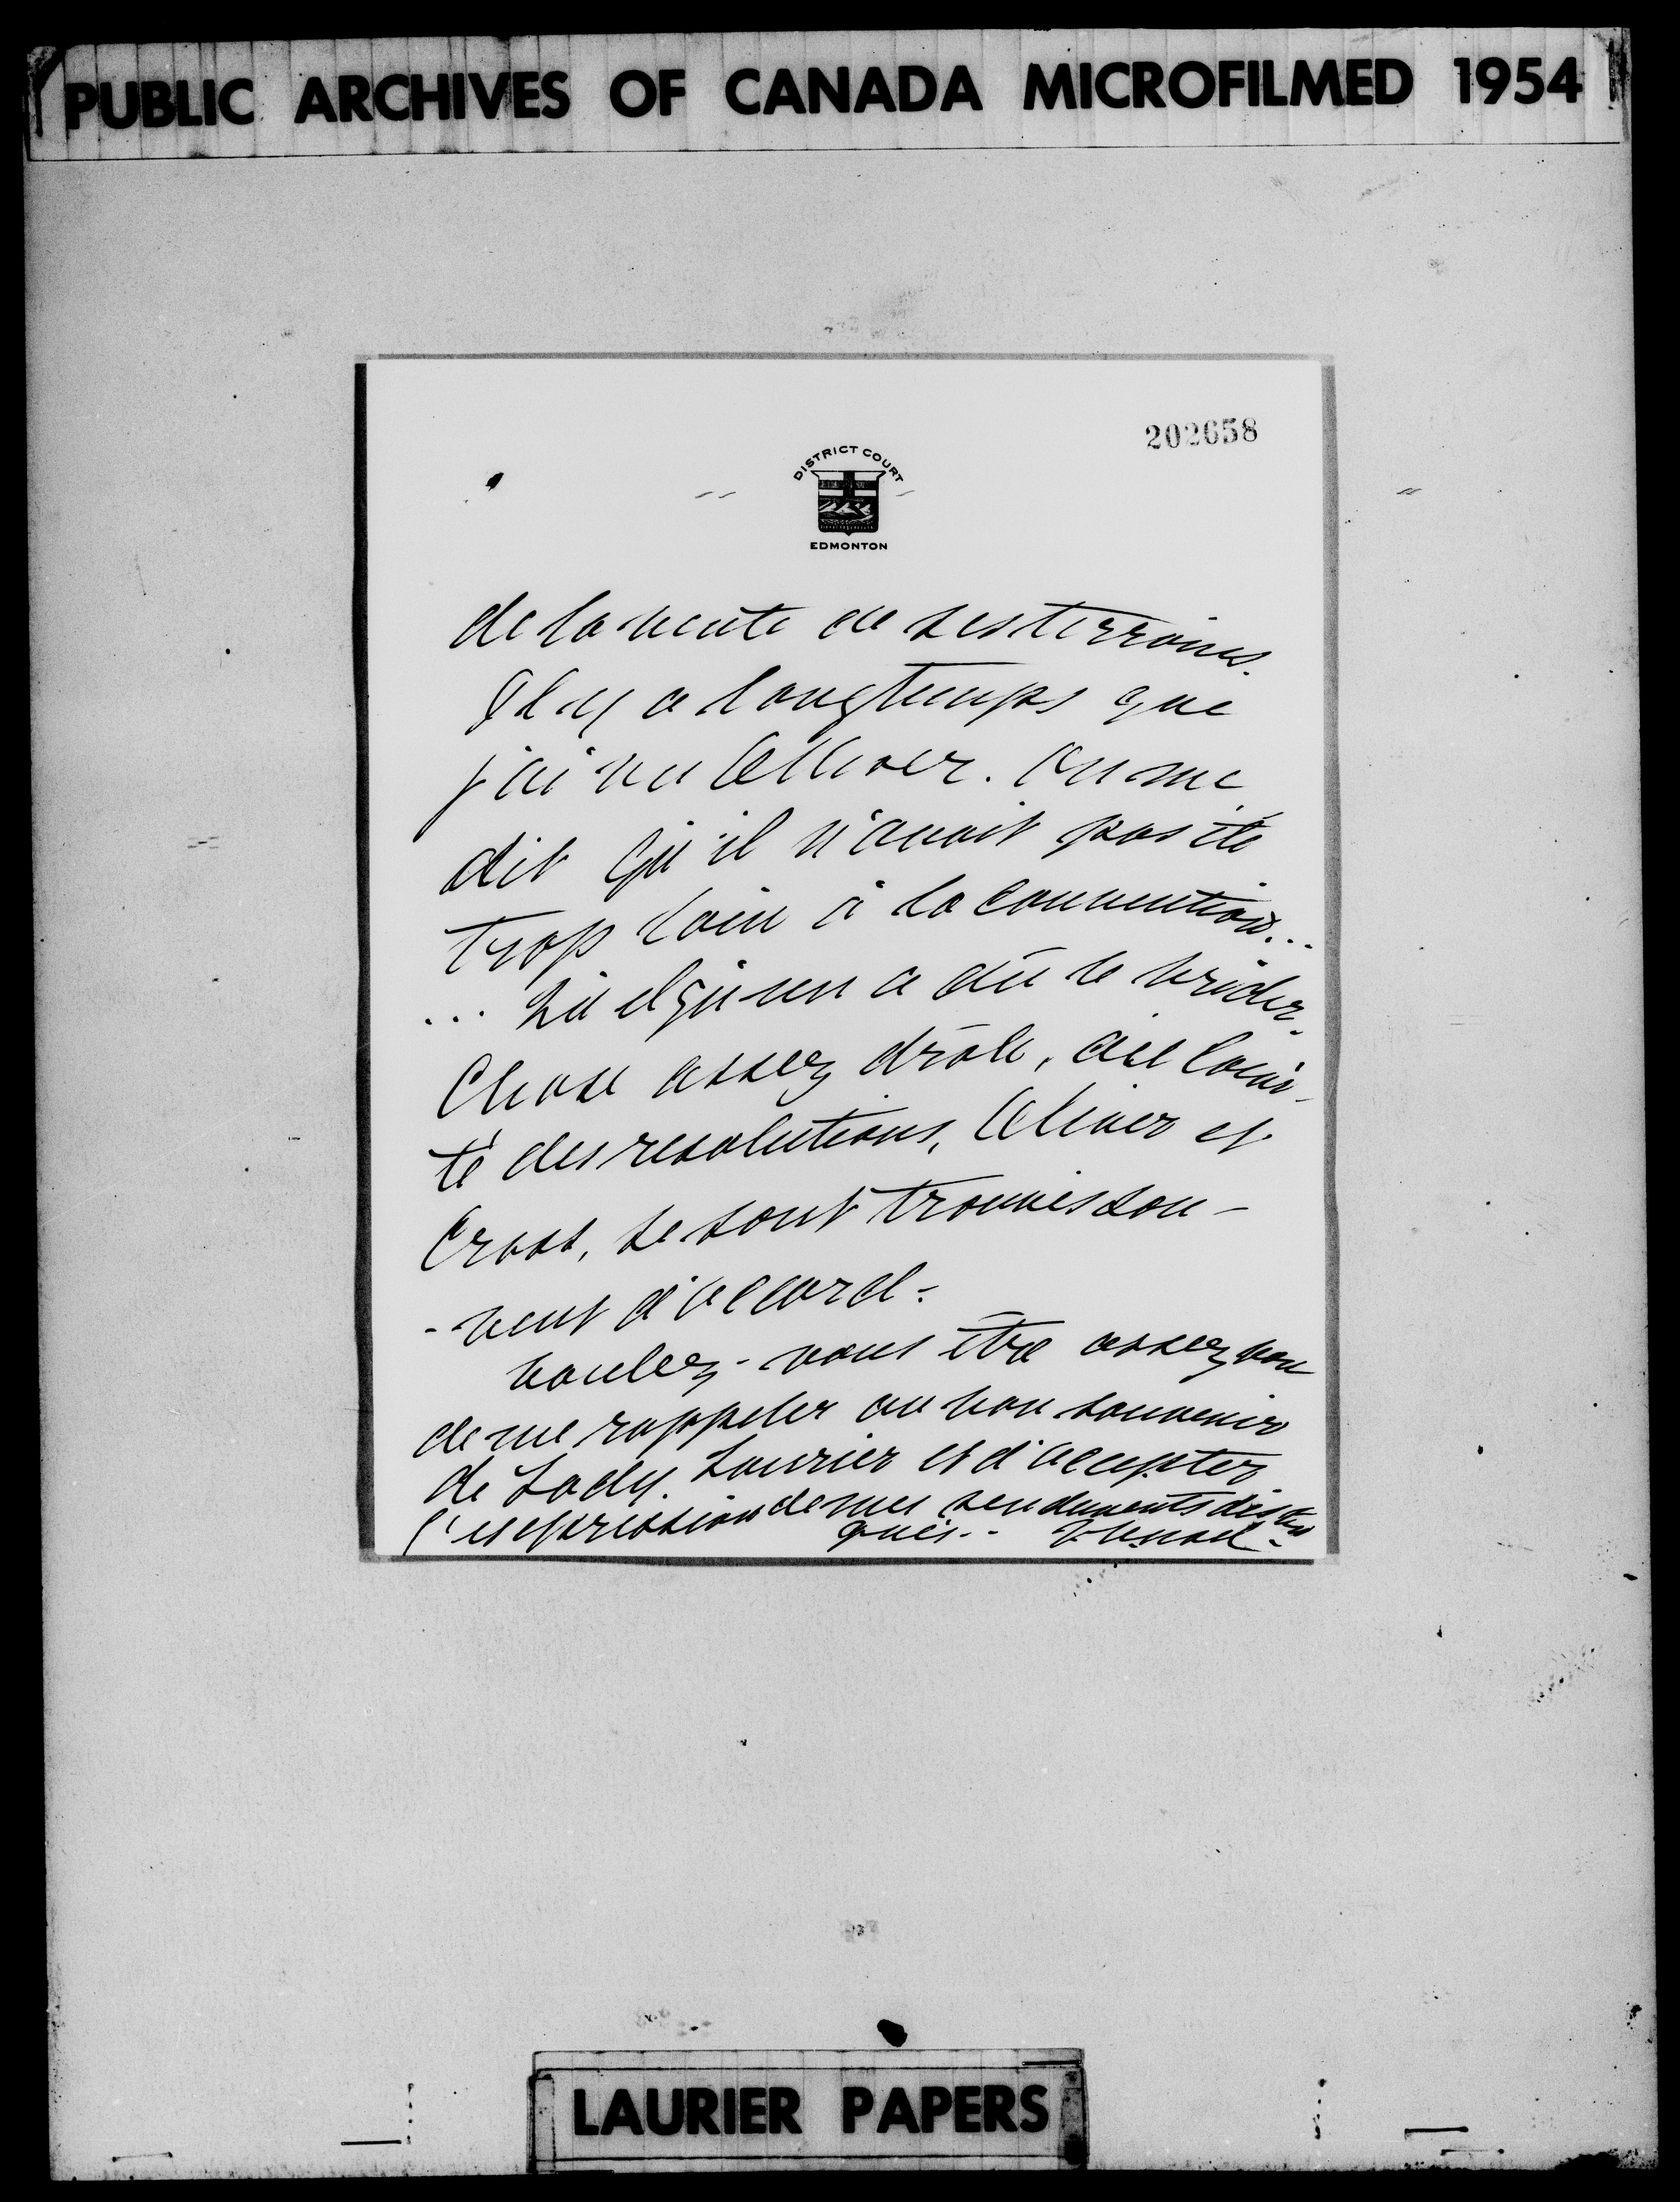 PUBLIC ARCHIVES OF CANADA MICROFILMED 1954
202658
DISTRICT COURT
EDMONTON
de la vente de ses terrains.
Il y a longtemps que
j'ai vu Oliver. On me
dit qu'il n'avait pas été
trop loin à la convention...
... Quelqu'un a dû le brider.
Chose assez drôle, au comi-
té des resolutions, Oliver et
Cross, se sont trouvés sou-
-vent d'accord.
Voulez-vous être assez bon
de me rappeler au bon souvenir
de Lady Laurier et d'accepter
l'expression de mes sentiments distin
gués.
LAURIER PAPERS